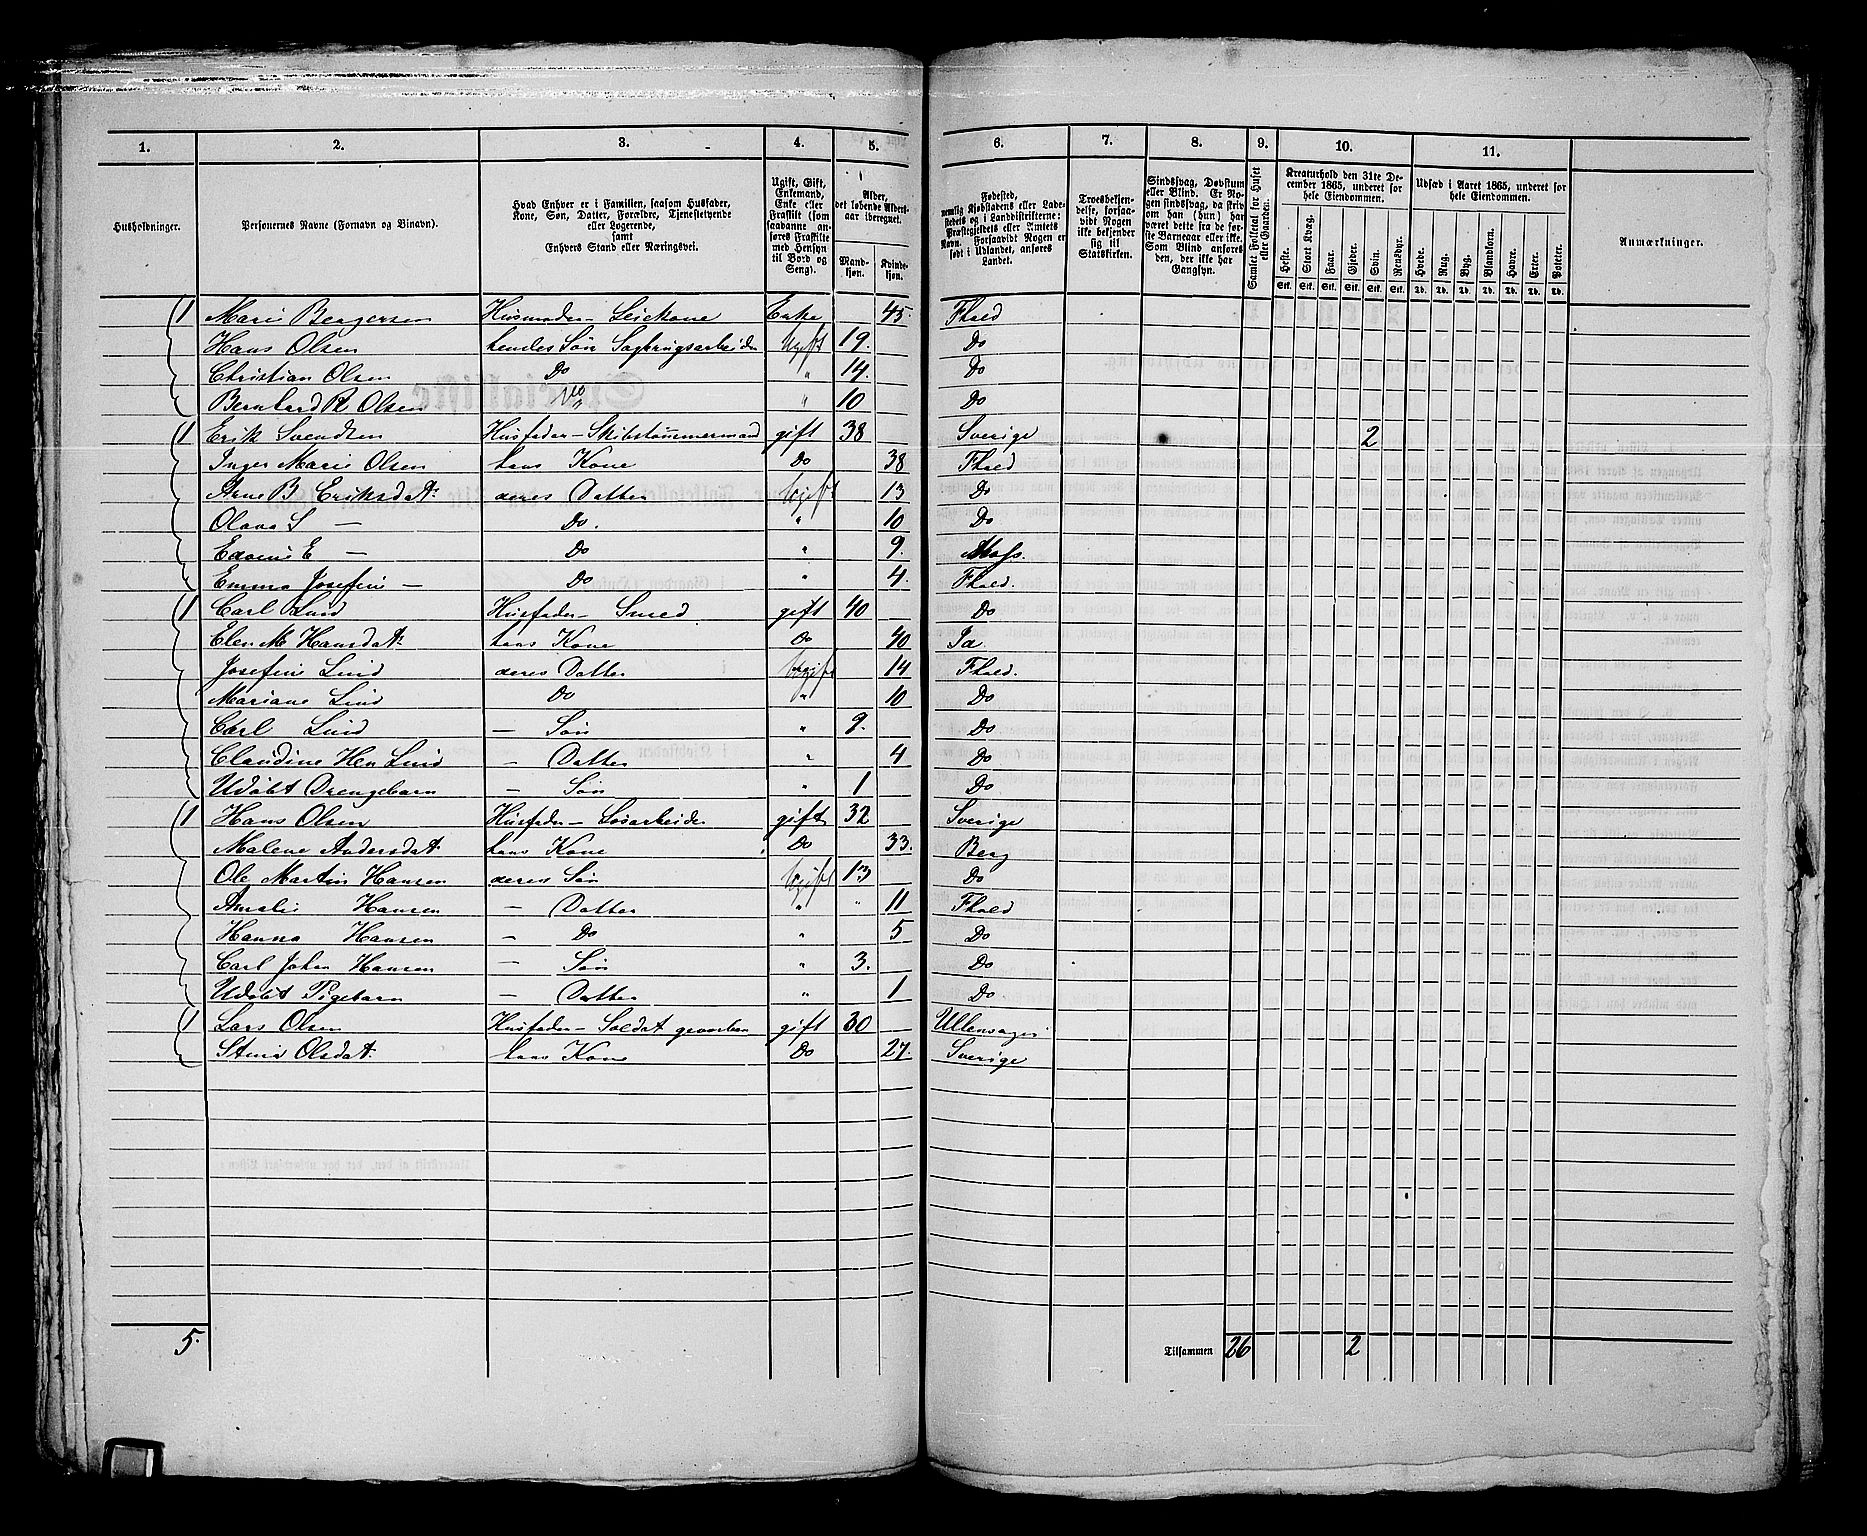 1. 2. 3. 4. 5. 6. 7. 8. 9. 10. 11.
Husholdninger.
Personernes Navne (Fornavn og Binavn).
Hvad Enhver er i Familien, saasom Husfader, Kone, Søn, Datter, Forældre, Tjenestetyende eller Logerende, samt Enhvers Stand eller Næringsvei.
Ugift, Gift, Enkemand, Enke eller Fraskilt (som saadanne anføres Fraskilte med Hensyn til Bord og Seng).
Alder, det løbende Aldersaar iberegnet.
Mandkjøn. Kvindekjøn.
Fødested, nemlig Kjøbstadens eller Ladestedets og i Landdistrikterne: Præstegjeldets eller Amtets Navn. Forsaavidt Nogen er født i Udlandet, anføres Landet.
Troesbekjendelse, forsaavidt Nogen ikke bekjender sig til Statskirken.
Sindssvag, Døvstum eller Blind. Er Nogen sindssvag, da skrives om han (hun) har været dette fra de første Barneaar eller ikke. Som Blind anføres den, der ikke har Gangsyn.
Samlet Folketal for Huset eller Gaarden.
Kreaturhold den 31te December 1865, underet for hele Eiendommen.
Heste. Stort Kvæg. Faar. Gjeder. Svin. Rensdyr.
Stk. Stk. Stk. Stk. Stk. Stk.
Udsæd i Aaret 1865, underet for hele Eiendommen.
Hvede. Rug. Byg. Blandkorn. Havre. Erter. Poteter.
Td. Td. Td. Td. Td. Td. Td.
Anmærkninger.
1 Marie Bergersen Husmoder - Leiekone Enke 45 Fhald
Hans Olsen hendes Søn Sagbrugsarbeider Ugift 19. Do
Christian Olsen Do " 14. Do
Bernhard A Olsen Do " 10 Do
1 Erik Svendsen Husfader - Skibstømmermand gift 38 Sverige 2
Inger Marie Olsen hans Kone Do 38 Fhald
Arne B Eriksdat: deres Datter Ugift 13 Do
Olava S — Do. " 10 Do
Edvine E — Do " 9. Moss.
Emma Josefine — Do " 4. Fhald.
1 Carl Lind Husfader - Smed gift 40 Do
Elen M Hansdat: hans Kone Do 40 Id
Josefine Lind deres Datter Ugift 14 Fhald.
Mariane Lind Do " 10 Do
Carl Lind — Søn " 9. Do
Claudine Hen Lind — Datter " 4 Do
Udøbt Drengebarn — Søn " 1 Do
1 Hans Olsen Husfader - Løsarbeider gift 32 Sverige
Malene Andersdat: hans Kone Do 33. Berg
Ole Martin Hansen deres Søn Ugift 13 Do
Amalie Hansen — Datter " " 11 Fhald
Hanna Hansen — Do " 5 Do
Carl Johan Hansen — Søn " 3. Do
Udøbt Pigebarn — Datter " 1 Do
1 Lars Olsen Husfader - Soldat gevorben gift 30 Ullensager
Stina Olsdat: hans Kone Do 27. Sverige
5. Tilsammen 26 2